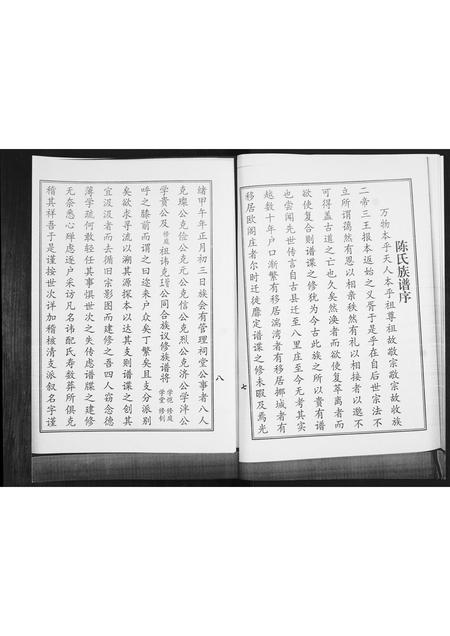 陈氏族谱序
万物本乎天人本乎祖尊祖故敬宗敬宗故收族
二帝三王报本返始之义胥于是乎在自后世宗法不
立所谓蔼然有恩以相亲秩然有礼以相接者以邈不
可得盖古道之亡也久矣然涣者而欲使复萃离者而
欲使复合则谱谍之修犹为今古此族之所以贵有谱
也尝闻先世传言自古县迁至八里庄至今无考其实
越数十年户口渐繁有移居湍湾者有移居挪城者有
移居欧阁庄者尔时迁徒靡定谱谍之修未暇及焉光
七
八
绪甲午年正月初三日族会有管理祠堂公事者八人
克璨公克俭公克元公克信公克烈公克济公学泮公
学贵公及修庭祖讳克璔公同合族议修族谱将学孢修庭学堂修钊
呼之膝前而谓之曰迩来户众矣丁繁矣且支分派别
矣欲求寻流以溯其源探本以达其支则谱谍之创其
宜汲汲者而去循旧宗影图而建修之吾四人窃念德
薄学疏何敢轻任其事惧世次之失传虑谱牒之建修
无奈悉心殚虑逐户采访凡名讳配氏寿数葬所俱克
稽其祥吾于是谨按世次详加稽核清支派叙名字谨